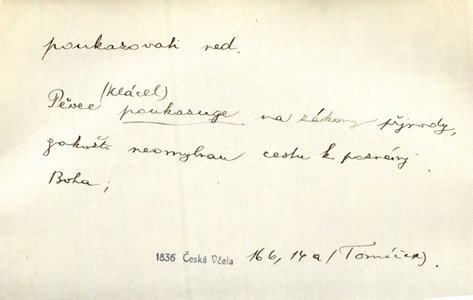 poukazovati ned.
(Klácel)
Pěvec poukazuge na zákony přjrody,
gakožto neomylnau cestu k poznánj
Boha;
1836 Česká Včela 166, 14a (Tomíček).